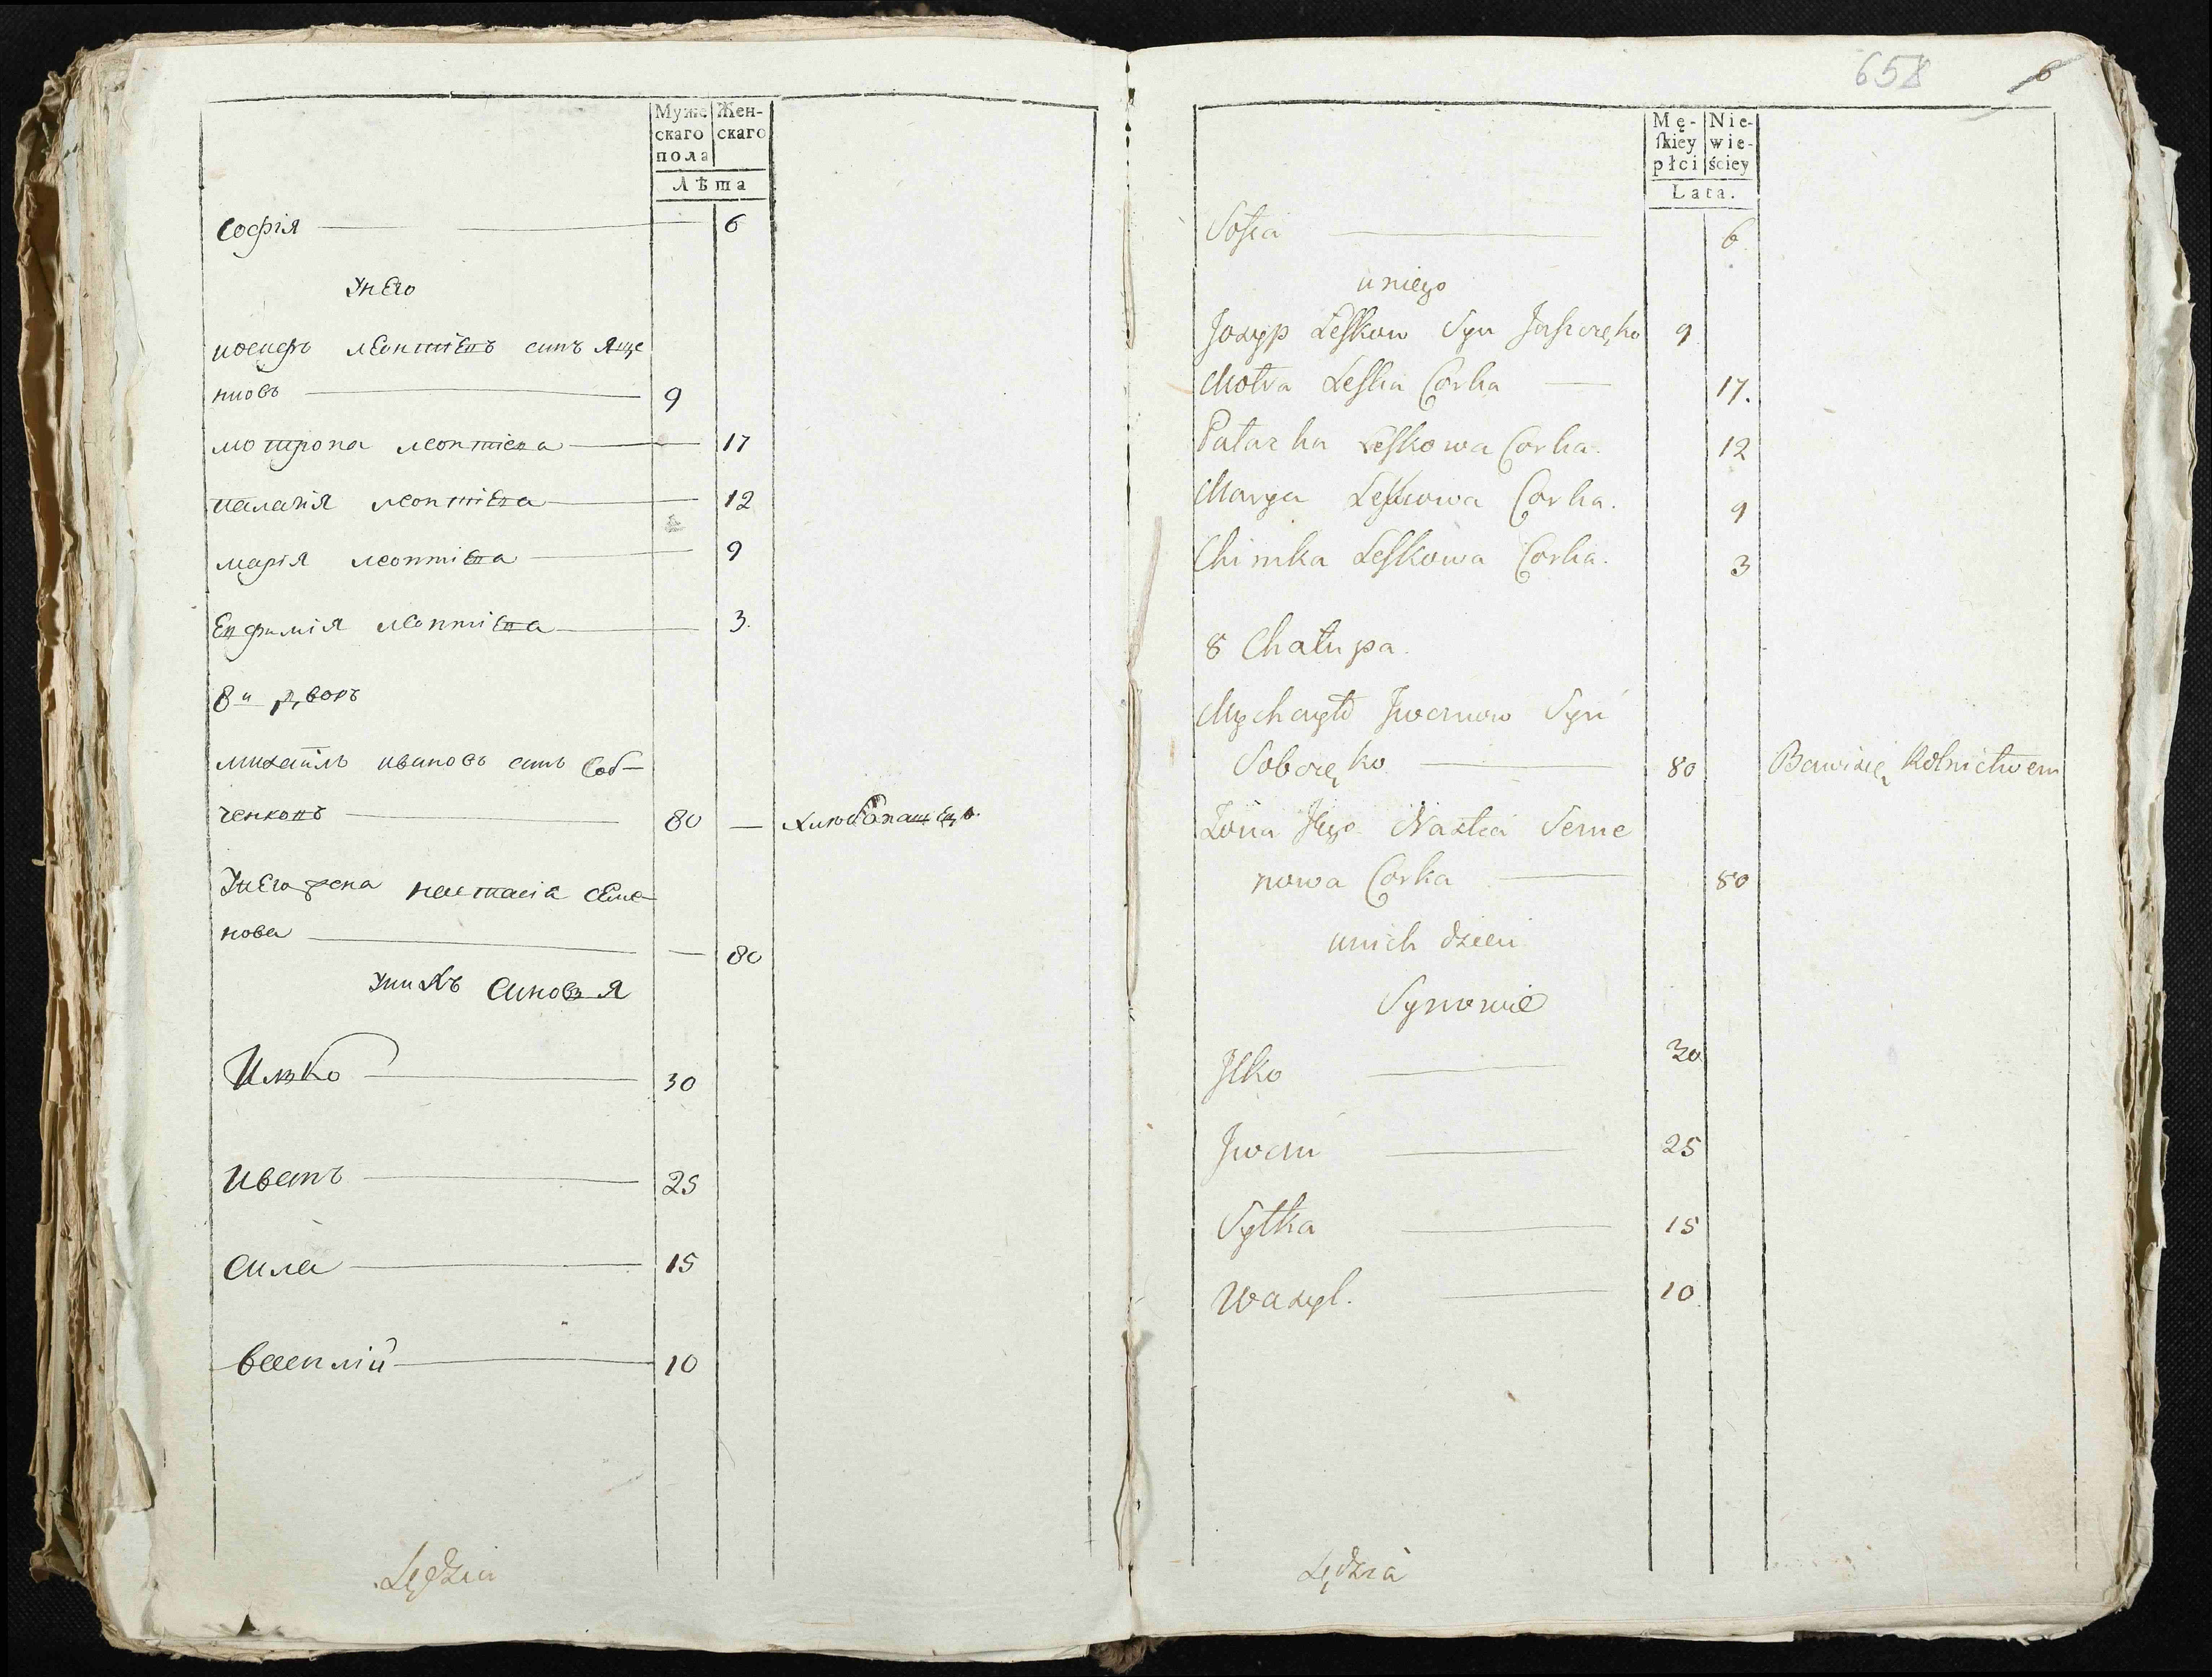 Муже Жен-
скаго скаго
пола
Лѣта
Софія 6
У него
иосифъ леонтіевъ синъ Яще
нковъ 9
мотрона леонтіева 17
палагія леонтіева 12
марія леонтіева 9
Евфимія леонтіева 3.
8й дворъ
михаилъ ивановъ синъ Соб-
ченковъ 80 — хлюбопашецъ
У него жена настасія семе-
нова — 80
У нихъ синовя
Илько 30
Иванъ 25
Сила 15
василій 10
Lędzia
658 6
Mę- Nie-
skiey wie-
płci ściey
Lata.
Sofia 6
u niego
Jozyp Leskow Syn Jaszczęko 9
Motra Leska Corka 17.
Palazka Leskowa Corka. 12
Marya Leskowa Corka. 9
Chimka Leskowa Corka. 3
8 Chałupa.
Mychayło Jwanow Syn
Sobczęko 80 Bawi się Rolnictwem
Żona Jego Nastia Seme
nowa Corka 80
u nich dzieci
Synowie
Jlko 30
Jwan 25
Sylka 15
Wazyl. 10
Lędzia